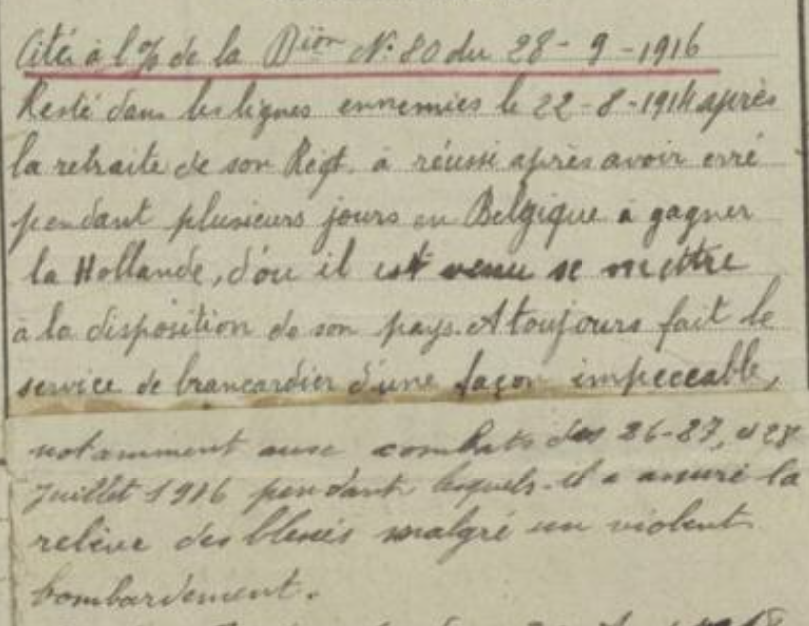 Cité à l'% de la Dion N° 80 du 28-9-1916
Resté dans les lignes ennemies le 22-8-1914 après
la retraite de son Régt. à réussi après avoir erré
pendant plusieurs jours en Belgique à gagner
la Hollande, d'ou il est venu se mettre
à la disposition de son pays. A toujours fait le
service de brancardier d'une façon impeccable,
notamment aux combats des 26-27, et 28
Juillet 1916 pendant lesquels il a assuré la
relève des blessés malgré un violent
bombardement.